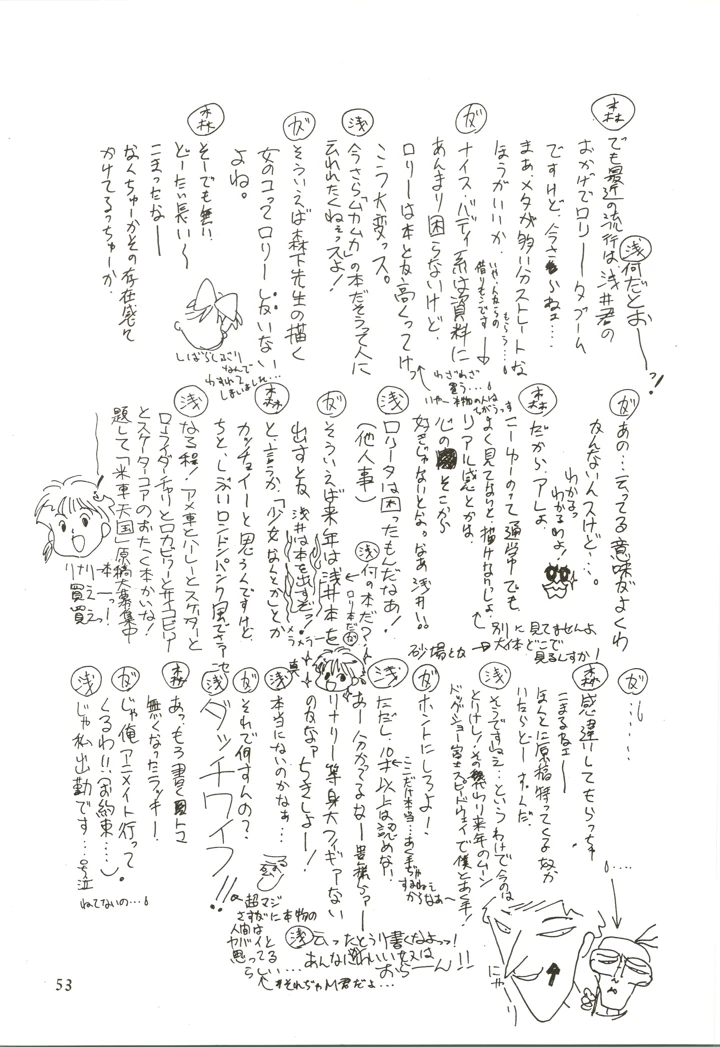 森
でも最近の流行は浅井君の
おかげでロリータブーム
ですけど、今さ〜ねェ…
まぁ、メタが多い分ストレートな
ほうがいいか、
浅 何だとお──っ!
ガ
ナイス・バディ系は資料に
あんまり困らないけど、
ロリーは本とな高くってけっ
こう大変っス。
浅
今さら「ムカムカ」の本だそうって人に
云われたくねェっスよ!
ガ
そういえば森下先生の描く
女のコってロリーしないない
よね。
森
そーでも無い、
どーたい長い〜
こまったな──
なくちゃーかその存在感て
かけてるっちゃーか、
しばらしぶり
なんで
わすれて
しまいました…
わざわざ
買う…
いやー本物の人は
ちがうっス
ガ
あの…云ってる意味がよくわ
かんないんスけど…。
わかるっ
わかるわよ!
森
だから、アレよ、
こーゆーのって通学中でも、
よく見てないと描けないでしょ
リアル感とかは、
心のそこから
好きじゃないとな。なあ浅井い。
別に見てませんよ
大体どこで
見るんすかー
砂場とな
浅
ロリータは困ったもんだなあ!
(他人事)
浅 何の本だ?
←ロリ本だな
ガ
そういえば来年は浅井本を
出すとな、浅井は本を出すぞっ!
メラメラー
森
と、言うか、「少女なんとか」とか
カッチョイーと思うんですけど
ちと、しぶいロンドンパンク風でさァーセ
浅
なる程!アメ車とハーレーとスケーターと
ローライダーチャリーとロカビリーとサイコビリー
とスケーターコアのおたく本かいな!
題して「米車天国」原稿大募集中
本ーっ!
ガ
……
森
感違いしてもらっちゃ
こまるねェ──
ほんとに原稿持ってくるなか
いたらどーすんだ、
浅
そうですねェ…というわけで今のは
とりけし!その代わり来年のムーン
ドッグショー富士スピードウェイで僕とあく手!
ガ
ホントにしろよー!
ここだけ本当…あく手ぢゃ
すまねェ
からなぁ〜
浅
ただし、10才以上は認めない
あー分かってるなー貴様ァァー
リナリー等身大フィギァーない
のななァ ちきしょー!
浅
本当にないのかなぁ…
ガ
それで何すんの?
浅
ダッチワイフ!!
超マジ
さすがに本物の
人間は
ヤバイと
思ってる
らしい…
浅 云ったとうり書くなよっ!
あんなにかわいい奴は
おらーん!!
それぢゃM君だよ…
森
あっもう書くトコ
無くなったラッキー!
ガ
じゃ俺アニメイト行って。
くるわ!!(お約束……)
浅
じゃ私出勤です…号泣
ねてないの…
にゃり
53